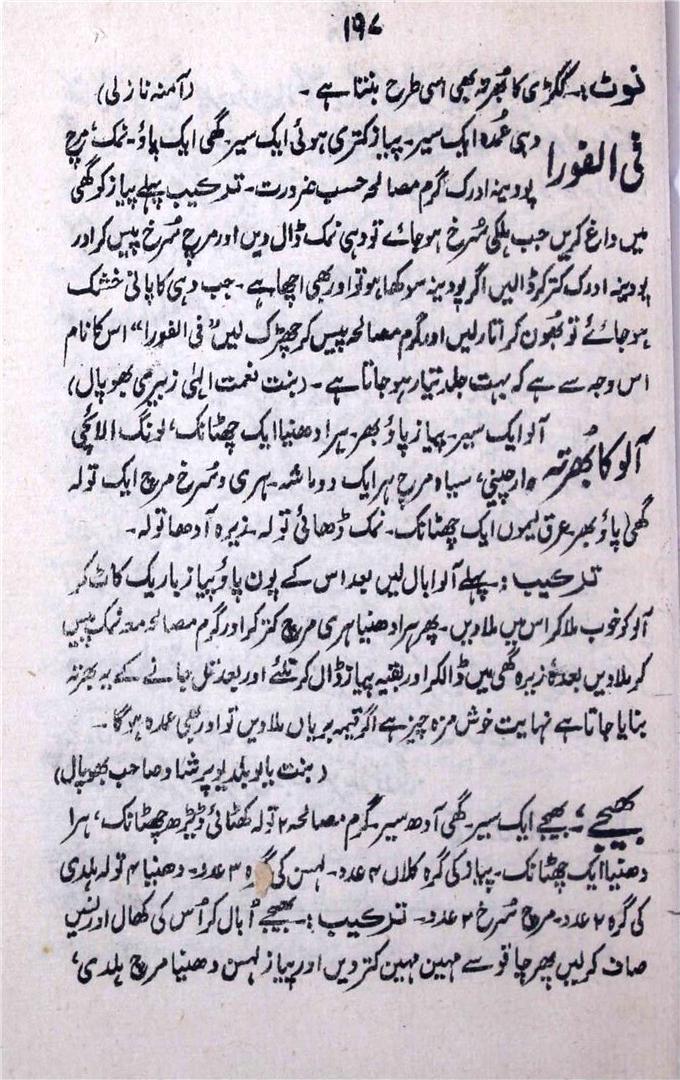 ۱۹۷
نوٹ:۔ ککڑی کا بھُرتہ بھی اسی طرح بنتا ہے۔ (آمنہ نازلی)
فی الفورا دہی عُمدہ ایک سیر۔ پیاز کتری ہوئی ایک سیر۔ گھی ایک پاؤ۔ نمک، مرچ
پودینہ ادرک گرم مصالحہ حسب ضرورت۔ ترکیب پہلے پیاز کو گھی
میں داغ کریں جب ہلکی سُرخ ہو جائے تو دہی نمک ڈال دیں اور مرچ سُرخ پیس کر اور
پودینہ ادرک کتر کر ڈالیں اگر پودینہ سوکھا ہو تو اور بھی اچھا ہے۔ جب دہی کا پانی خشک
ہو جائے تو بھُون کر اتار لیں اور گرم مصالحہ پیس کر چھڑک لیں ”فی الفورا“ اس کا نام
اس وجہ سے ہے کہ بہت جلد تیار ہو جاتا ہے۔ (بنت نعمت الہٰی زبیری بھوپال)
آلو ایک سیر۔ پیاز پاؤ بھر۔ ہرا دھنیا ایک چھٹانک، لونگ الائچی
آلو کا بھُرتہ دارچینی، سیاہ مرچ ہر ایک دو ماشہ۔ ہری و سُرخ مرچ ایک تولہ
گھی پاؤ بھر۔ عرق لیموں ایک چھٹانک۔ نمک ڈھائی تولہ۔ زیرہ آدھا تولہ۔
ترکیب:۔ پہلے آلو ابال لیں بعد اس کے پون پاؤ پیاز باریک کاٹ کر
آلو کو خوب ملا کر اس میں ملا دیں۔ پھر ہرا دھنیا ہری مرچ کتر کر اور گرم مصالحہ معہ نمک پیس
کر ملا دیں بعدہٗ زیرہ گھی میں ڈالکر اور بقیہ پیاز ڈال کر تلئے اور بعد تل جانے کے یہ بھرتہ
بنایا جاتا ہے نہایت خوش مزہ چیز ہے اگر قیمہ بریاں ملا دیں تو اور بھی عمدہ ہوگا۔
(بنت بابو بلدیو پرشاد صاحب بھوپال)
بھیجے:۔ بھیجے ایک سیر۔ گھی آدھ سیر۔ گرم مصالحہ ۲ تولہ کھٹائی ڈیڑھ چھٹانک، ہرا
دھنیا ایک چھٹانک۔ پیاز کی گرہ کلاں ۴ عدد۔ لہسن کی گرہ ۳ عدد۔ دھنیا ۴ تولہ ہلدی
کی گرہ ۲ عدد۔ مرچ سُرخ ۲ عدد۔ ترکیب:۔ بھیجے اُبال کر اُس کی کھال اور نسیں
صاف کر لیں پھر چاقو سے مہین مہین کتر دیں اور پیاز لہسن دھنیا مرچ ہلدی،